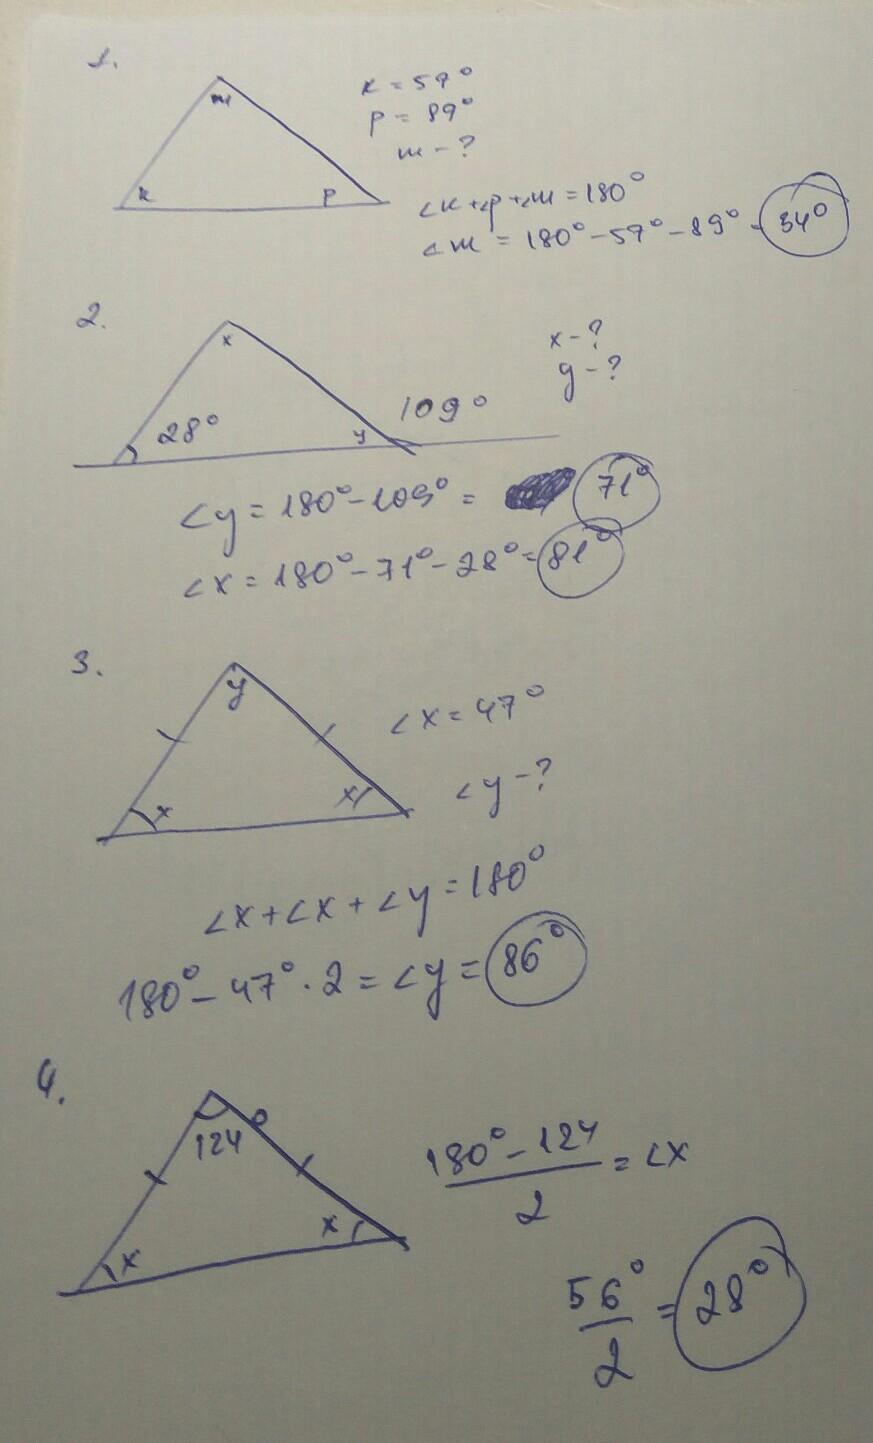 1.
m
k
p
k = 57°
p = 89°
m - ?
∠k + ∠p + ∠m = 180°
∠m = 180° - 57° - 89° = 34°
2.
x
28°
y
109°
x - ?
y - ?
∠y = 180° - 109° = 71°
∠x = 180° - 71° - 28° = 81°
3.
y
x
x
∠x = 47°
∠y - ?
∠x + ∠x + ∠y = 180°
180° - 47° · 2 = ∠y = 86°
4.
124°
x
x
180° - 124
2
= ∠x
56°
2
= 28°